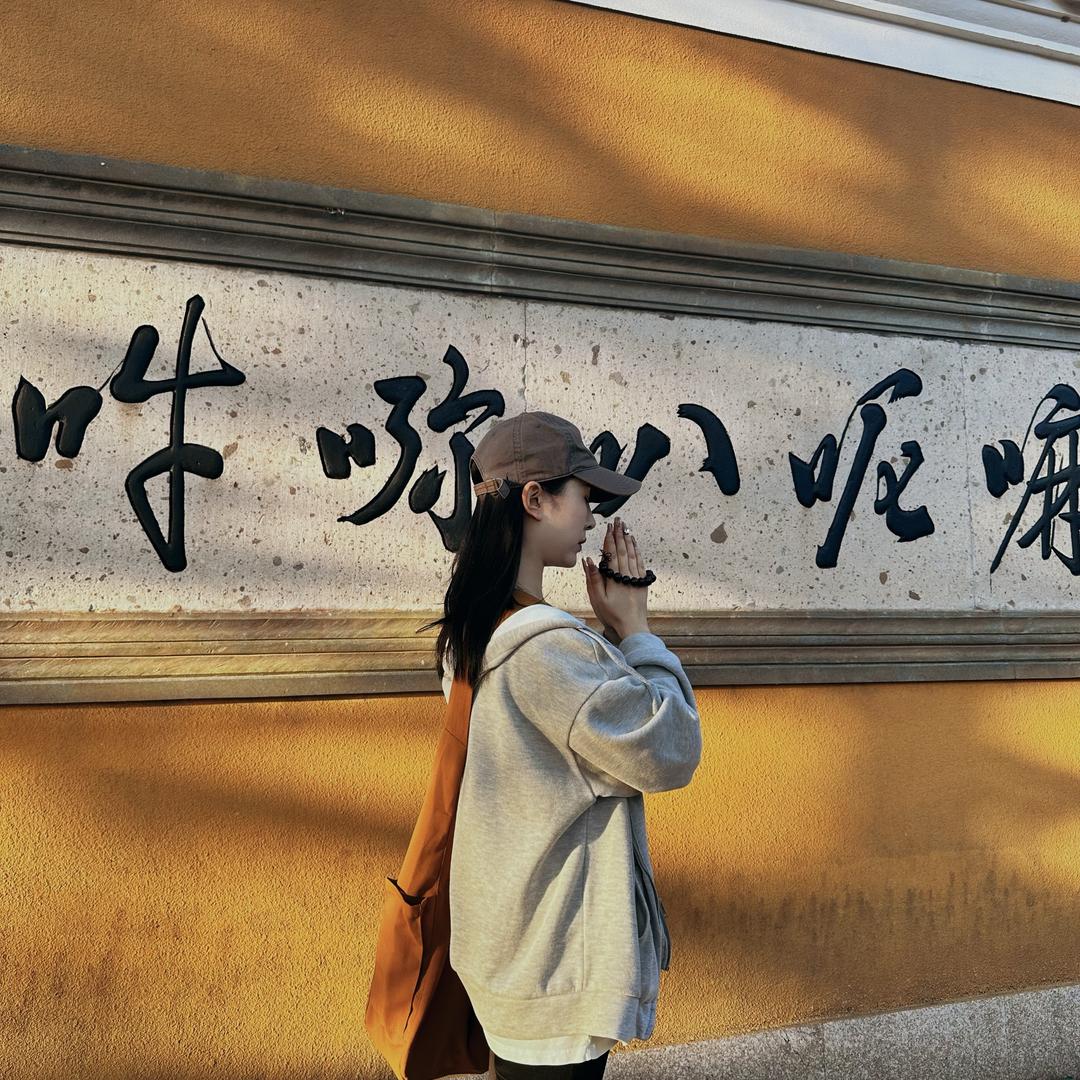 嘛呢叭吽